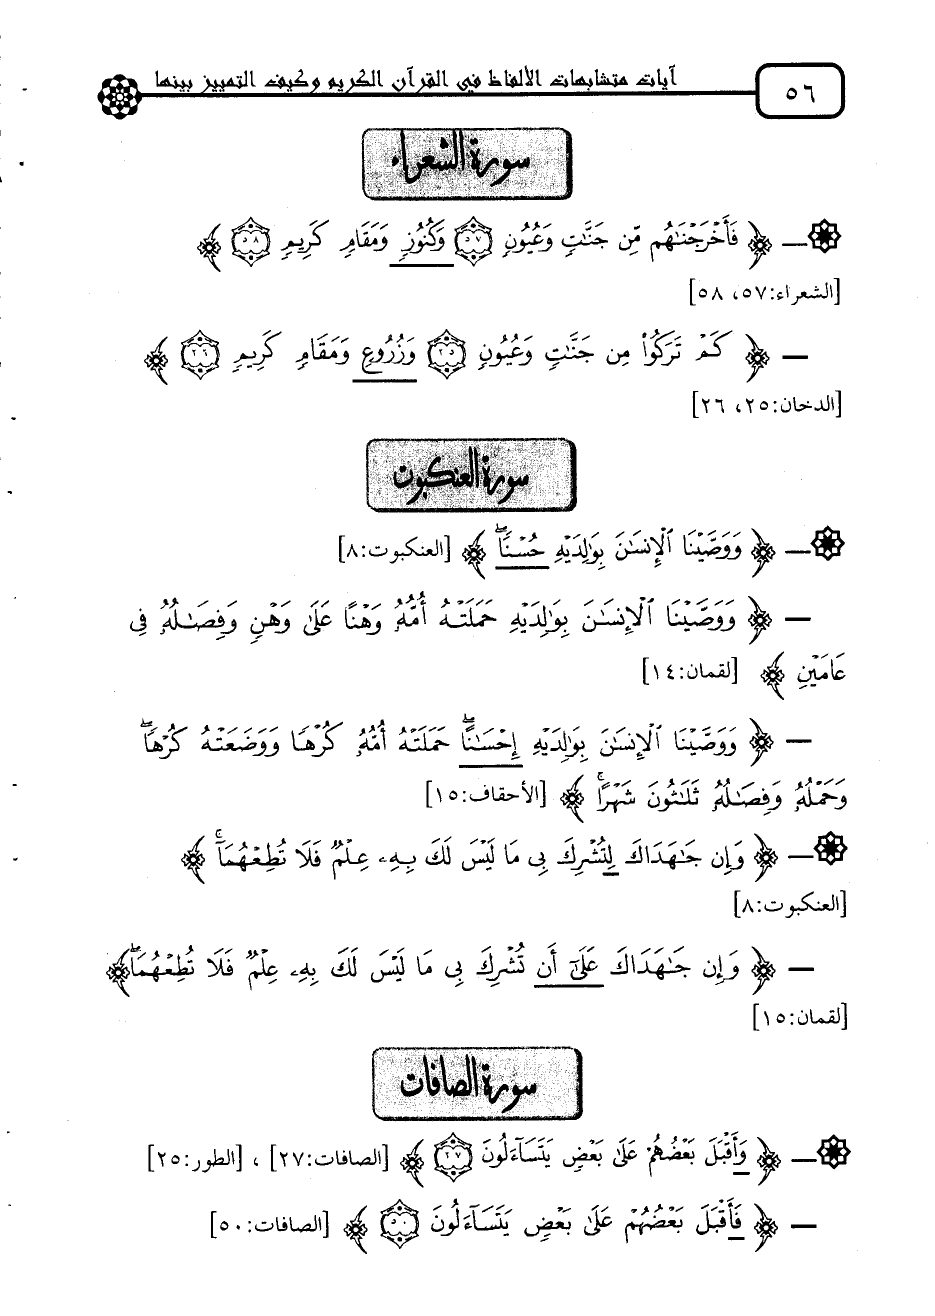 ٥٦
آيات متشابهات الألفاظ في القرآن الكريم وكيف التمييز بينها
سورة الشعراء
— ﴿ فَأَخْرَجْنَـٰهُم مِّن جَنَّـٰتٍ وَعُيُونٍ ٥٧ وَكُنُوزٍ وَمَقَامٍ كَرِيمٍ ٥٨ ﴾
[الشعراء:٥٧، ٥٨]
— ﴿ كَمْ تَرَكُوا۟ مِن جَنَّـٰتٍ وَعُيُونٍ ٢٥ وَزُرُوعٍ وَمَقَامٍ كَرِيمٍ ٢٦ ﴾
[الدخان:٢٥، ٢٦]
سورة العنكبوت
— ﴿ وَوَصَّيْنَا ٱلْإِنسَـٰنَ بِوَٰلِدَيْهِ حُسْنًا ۖ ﴾ [العنكبوت:٨]
— ﴿ وَوَصَّيْنَا ٱلْإِنسَـٰنَ بِوَٰلِدَيْهِ حَمَلَتْهُ أُمُّهُۥ وَهْنًا عَلَىٰ وَهْنٍ وَفِصَـٰلُهُۥ فِى
عَامَيْنِ ﴾ [لقمان:١٤]
— ﴿ وَوَصَّيْنَا ٱلْإِنسَـٰنَ بِوَٰلِدَيْهِ إِحْسَـٰنًا ۖ حَمَلَتْهُ أُمُّهُۥ كُرْهًا وَوَضَعَتْهُ كُرْهًا ۖ
وَحَمْلُهُۥ وَفِصَـٰلُهُۥ ثَلَـٰثُونَ شَهْرًا ۚ ﴾ [الأحقاف:١٥]
— ﴿ وَإِن جَـٰهَدَاكَ لِتُشْرِكَ بِى مَا لَيْسَ لَكَ بِهِۦ عِلْمٌ فَلَا تُطِعْهُمَآ ۚ ﴾
[العنكبوت:٨]
— ﴿ وَإِن جَـٰهَدَاكَ عَلَىٰٓ أَن تُشْرِكَ بِى مَا لَيْسَ لَكَ بِهِۦ عِلْمٌ فَلَا تُطِعْهُمَا ۖ ﴾
[لقمان:١٥]
سورة الصافات
— ﴿ وَأَقْبَلَ بَعْضُهُمْ عَلَىٰ بَعْضٍ يَتَسَآءَلُونَ ٢٧ ﴾ [الصافات:٢٧] ، [الطور:٢٥]
— ﴿ فَأَقْبَلَ بَعْضُهُمْ عَلَىٰ بَعْضٍ يَتَسَآءَلُونَ ٥٠ ﴾ [الصافات:٥٠]